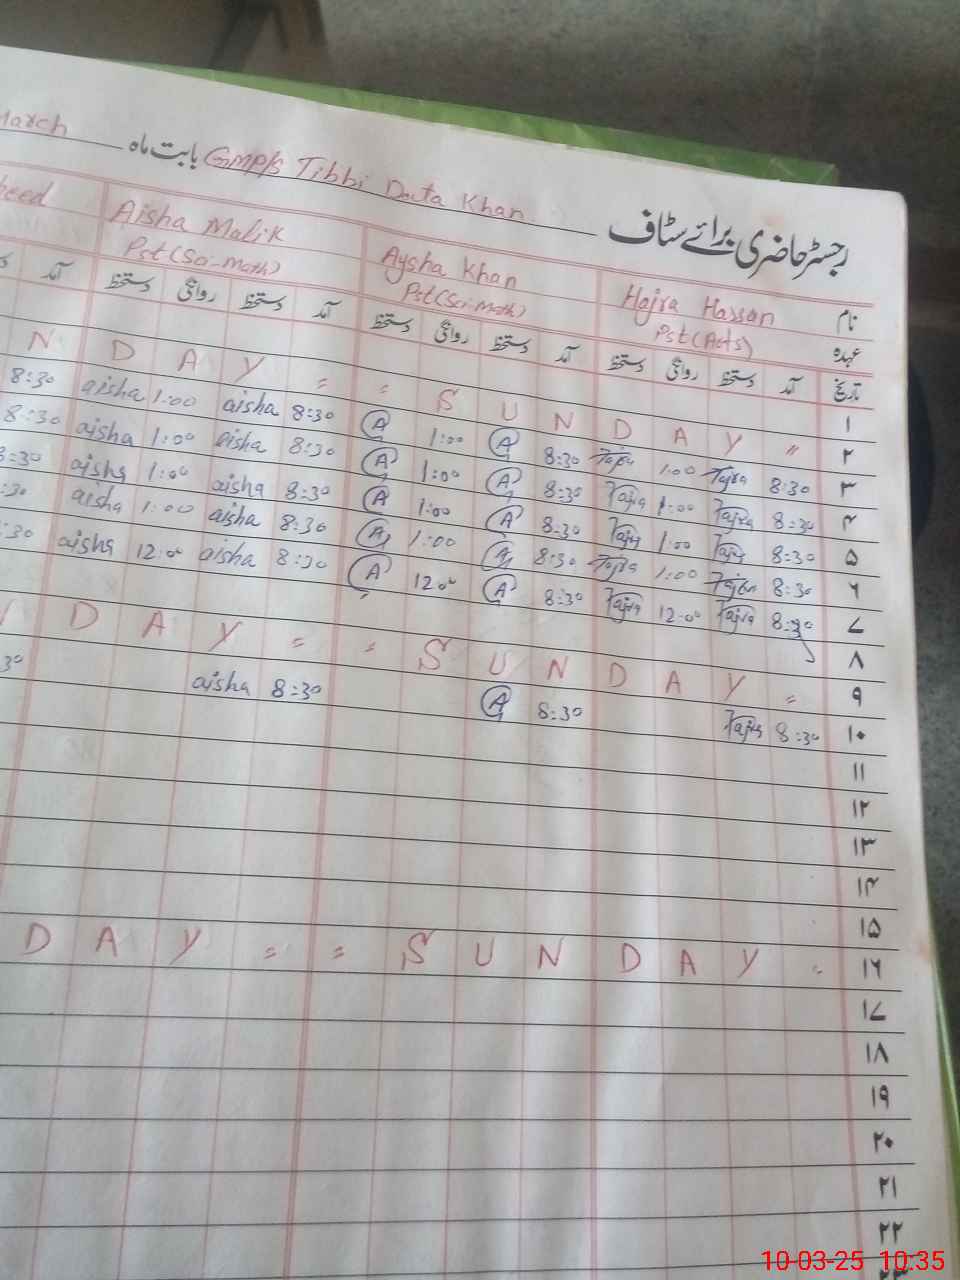 رجسٹر حاضری برائے سٹاف GMP/S Tibbi Data Khan بابت ماہ March
نام Hajra Hassan Aysha Khan Aisha Malik
عہدہ Pst (Arts) Pst (Sci-Math) Pst (Sci-Math)
تاریخ آمد دستخط روانگی دستخط آمد دستخط روانگی دستخط آمد دستخط روانگی دستخط آمد
۱
N D A Y = = S U N D A Y = ۲
8:30 aisha 1:00 aisha 8:30 A 1:00 A 8:30 Tajra 1:00 Tajra 8:30 ۳
8:30 aisha 1:00 aisha 8:30 A 1:00 A 8:30 Tajra 1:00 Tajra 8:30 ۴
8:30 aisha 1:00 aisha 8:30 A 1:00 A 8:30 Tajra 1:00 Tajra 8:30 ۵
:30 aisha 1:00 aisha 8:30 A 1:00 A 8:30 Tajra 1:00 Tajra 8:30 ۶
:30 aisha 12:00 aisha 8:30 A 12:00 A 8:30 Tajra 12:00 Tajra 8:30 ۷
۸
D A Y = = S U N D A Y = ۹
30 aisha 8:30 A 8:30 Tajra 8:30 ۱۰
۱۱
۱۲
۱۳
۱۴
۱۵
D A Y = = S U N D A Y = ۱۶
۱۷
۱۸
۱۹
۲۰
۲۱
۲۲
۲۳
10-03-25 10:35